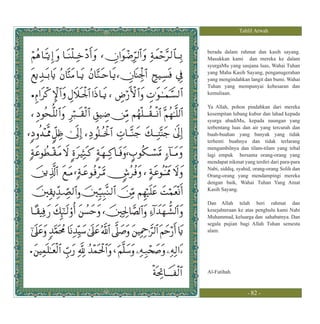 Tahlil Arwah
بِالرَّحْمَةِ وَالرِّضْوَانِ، وَأَدْخِلْنَا وَإِيَّاهُمْ
فِي فَسِيحِ الْجِنَانِ، يَا حَنَّانُ يَا مَنَّانُ يَا بَدِيعَ
السَّمَوَاتِ وَالْأَرْضِ، يَاذَا الْجَلَالِ وَالْإِكْرَامِ.
اللَّهُمَّ وَانْقُلْهُمْ مِنْ ضِيقِ الْقَبْرِ وَاللُّحُودِ،
إِلَى جَنَّتِكَ جَنَّاتِ الْخُلُودِ، فِي ظِلٍّ مَمْدُودٍ،
وَمَاءٍ مَسْكُوبٍ، وَفَاكِهَةٍ كَثِيرَةٍ لَا مَقْطُوعَةٍ
وَلَا مَمْنُوعَةٍ وَفُرُشٍ مَرْفُوعَةٍ، مَعَ الَّذِينَ
أَنْعَمْتَ عَلَيْهِمْ مِنَ النَّبِيِّينَ وَالصِّدِّيقِينَ
وَالشُّهَدَاءِ وَالصَّالِحِينَ، وَحَسُنَ أُولَئِكَ رَفِيقًا
يَا أَرْحَمَ الرَّاحِمِينَ وَصَلَّى اللهُ عَلَى سَيِّدِنَا مُحَمَّدٍ وَعَلَى
آلِهِ، وَصَحْبِهِ، وَسَلَّمَ، وَالْحَمْدُ لِلَّهِ رَبِّ الْعَالَمِينَ.
الْفَاتِحَةُ
berada dalam rahmat dan kasih sayang.
Masukkan kami dan mereka ke dalam
syurgaMu yang seujana luas, Wahai Tuhan
yang Maha Kasih Sayang, penganugerahan
yang mengindahkan langit dan bumi. Wahai
Tuhan yang mempunyai kebesaran dan
kemuliaan.
Ya Allah, pohon pindahkan dari mereka
kesempitan lubang kubur dan lahad kepada
syurga abadiMu, kepada naungan yang
terbentang luas dan air yang tercurah dan
buah-buahan yang banyak yang tidak
terhenti buahnya dan tidak terlarang
mengambilnya dan tilam-tilam yang tebal
lagi empuk bersama orang-orang yang
mendapat nikmat yang terdiri dari para-para
Nabi, siddiq, syahid, orang-orang Solih dan
Orang-orang yang mendampingi mereka
dengan baik, Wahai Tuhan Yang Amat
Kasih Sayang.
Dan Allah telah beri rahmat dan
kesejahteraan ke atas penghulu kami Nabi
Muhammad, keluarga dan sahabatnya. Dan
segala pujian bagi Allah Tuhan semesta
alam.
Al-Fatihah.
- 82 -